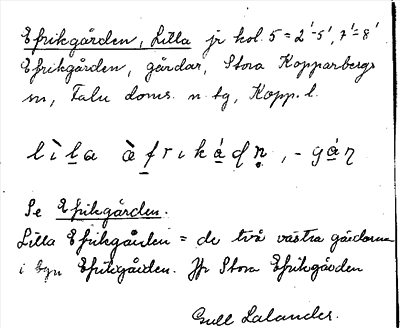 Efrikgården, Lilla jr kol. 5 = 2'-5', 7'-8'
Efrikgården, gårdar, Stora Kopparbergs
sn, Falu doms. n. tg, Kopp. l.
lìla àfrikádṇ, -gáṇ
Se Efrikgården.
Lilla Efrikgården = de två västra gårdarna
i byn Efrikgården. Jfr Stora Efrikgården
Gull Lalander.